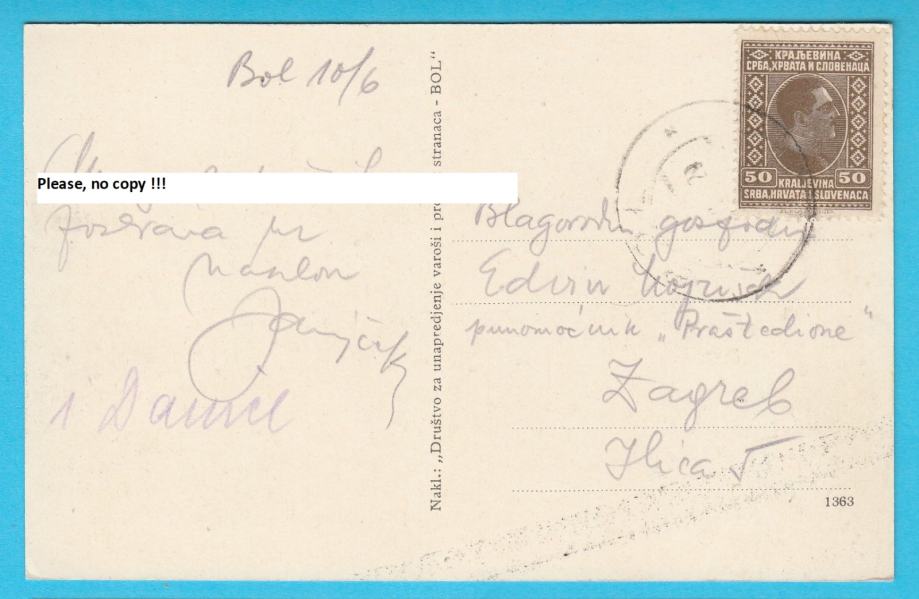 Bol 10/6
Please, no copy !!!
pozdrava uz
naklon
i Danice
Nakl.: „Društvo za unapredjenje varoši i pro stranaca - BOL“
КРАЉЕВИНА
СРБА, ХРВАТА И СЛОВЕНАЦА
50 50
KRALJEVINA
SRBA, HRVATA I SLOVENACA
Blagorodni gospodin
Edvin
punomoćnik „Praštedione“
Zagreb
Ilica 5
1363